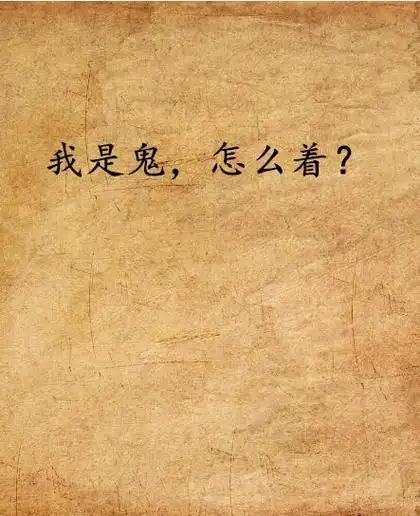 我是鬼，怎么着？